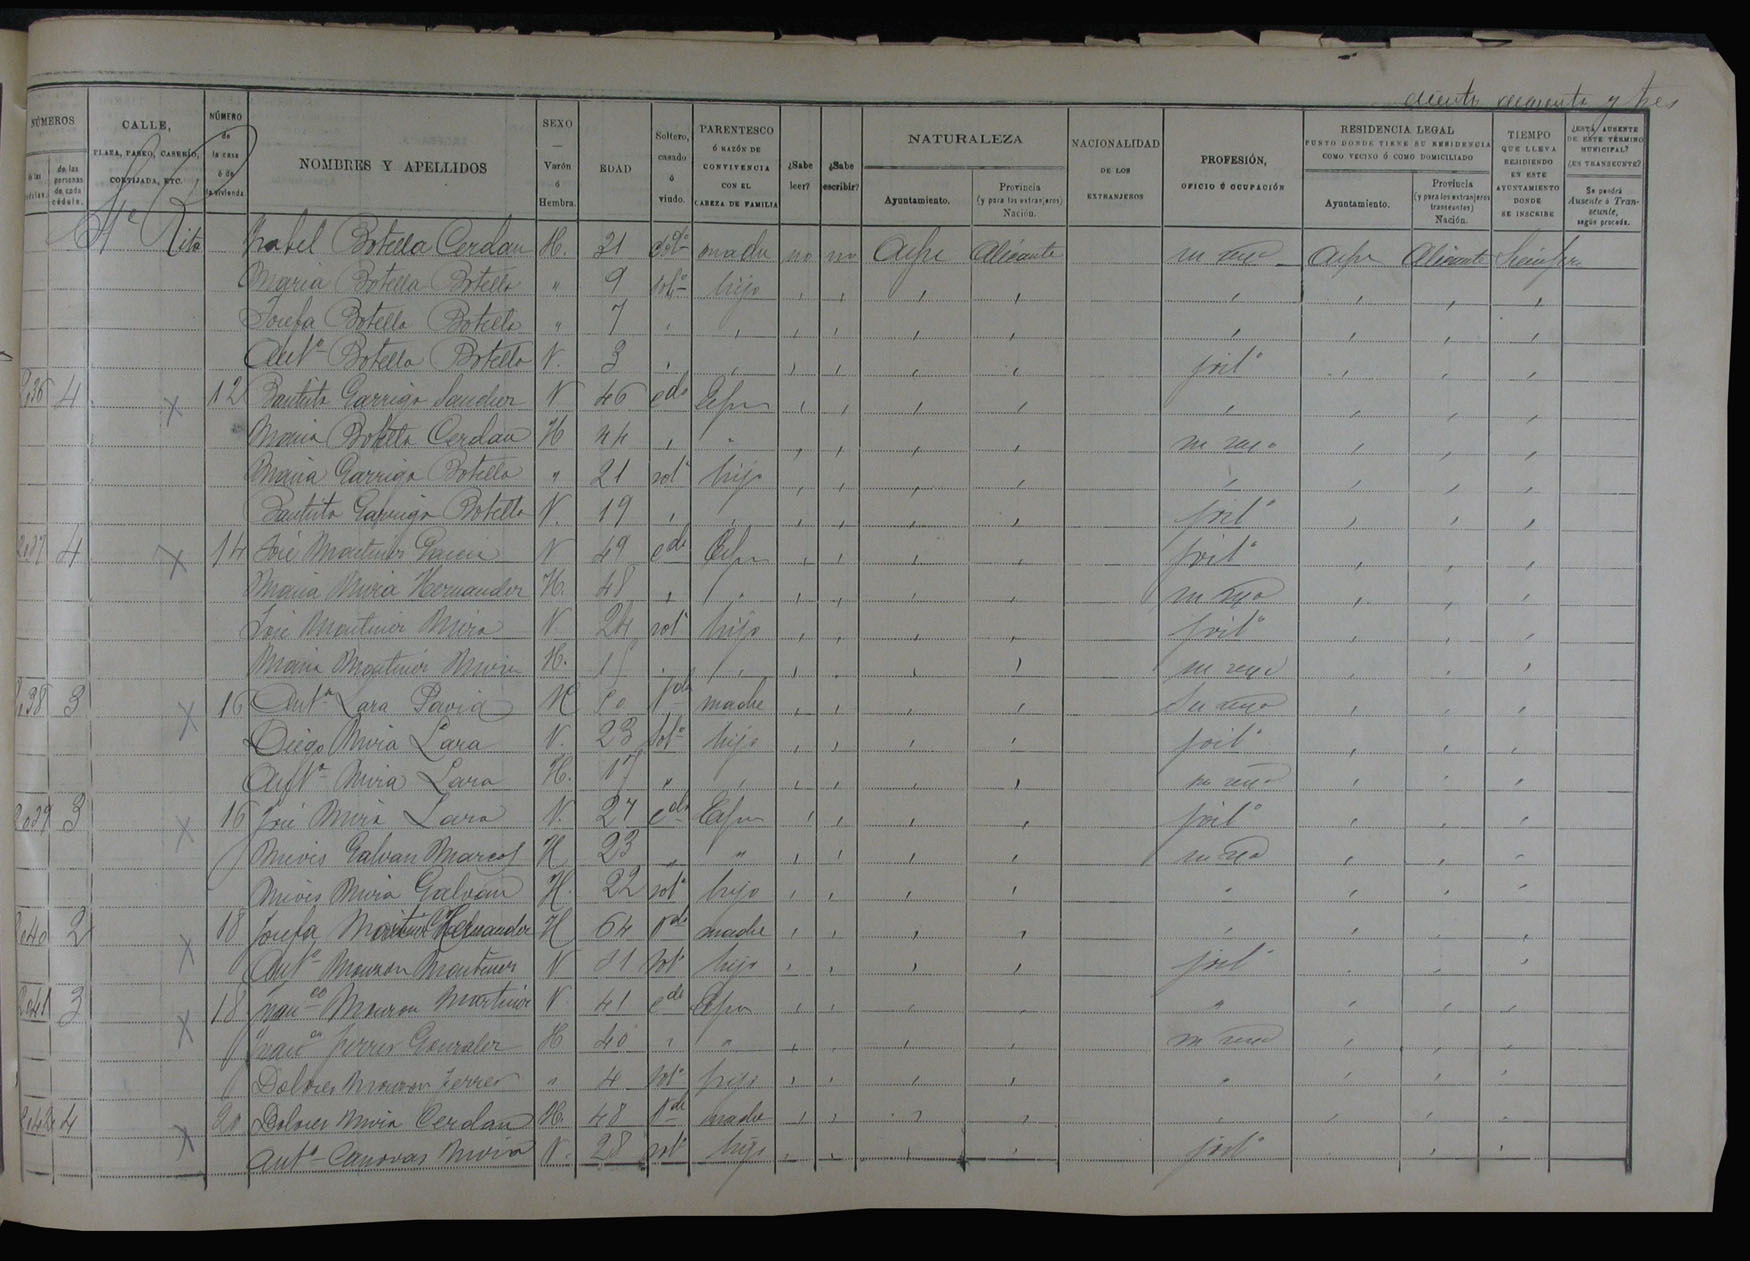 ciento cincuenta y tres
NÚMEROS
de las cédulas.
de las personas de cada cédula.
CALLE, PLAZA, PASEO, CASERÍO, CORTIJADA, ETC.
NÚMERO de la casa ó de la vivienda.
NOMBRES Y APELLIDOS
SEXO — Varón ó Hembra.
EDAD
Soltero, casado ó viudo.
PARENTESCO Ó RAZÓN DE CONVIVENCIA CON EL CABEZA DE FAMILIA
¿Sabe leer?
¿Sabe escribir?
NATURALEZA
Ayuntamiento.
Provincia (y para los extranjeros) Nación.
NACIONALIDAD DE LOS EXTRANJEROS
PROFESIÓN, OFICIO Ú OCUPACIÓN
RESIDENCIA LEGAL
PUNTO DONDE TIENE SU RESIDENCIA COMO VECINO Ó COMO DOMICILIADO
Ayuntamiento.
Provincia (y para los extranjeros transeuntes) Nación.
TIEMPO QUE LLEVA RESIDIENDO EN ESTE AYUNTAMIENTO DONDE SE INSCRIBE
¿ESTÁ AUSENTE DE ESTE TÉRMINO MUNICIPAL? ¿ES TRANSEUNTE?
Se pondrá Ausente ó Transeunte, según proceda.
Sta Rita Isabel Botella Cerdan H. 31 madre no no Aspe Alicante su casa Aspe Alicante Siempre
Maria Botella Botella " 9 solta hija , , , , , , , ,
Josefa Botella Botella " 7 , , , , , , , , , ,
Anto Botella Botella V. 3 , , , , , , , , ,
2036 4 X 12 Bautista Garrigo Sanchez V 46 cdo , , , , , , , ,
Maria Botella Cerdan H 44 , " , , , , su casa , , ,
Maria Garrigo Botella " 21 solta hija , , , , , , , ,
Bautista Garrigo Botella V. 19 , , , , , , , , ,
2037 4 X 14 José Martinez Garcia V 49 cdo , , , , , , ,
Maria Mira Hernandez H. 48 , , , , , , su casa , , ,
José Martinez Mira V. 24 solto hijo , , , , , , ,
Maria Martinez Mira H. , , , , , , su casa , , ,
2038 3 X 16 Anta Lara Pavia H vda madre , , , , su casa , , ,
Diego Mira Lara V. 23 solto hijo , , , , , , ,
Anta Mira Lara H. 17 " , , , , , su casa , , ,
2039 3 X 16 José Mira Lara V. 27 cdo , , , , , , ,
Nieves Galvan Marcos H 23 " " , , , , su casa , , ,
Nieves Mira Galvan H. 22 solta hija , , , , " , , ,
2040 2 X 18 Josefa Martinez Hernandez H 64 vda madre , , , , , , , ,
Anto Monzon Martinez V 31 solto hijo , , , , , , ,
2041 3 X 18 Franco Monzon Martinez V. 41 cdo , , , , " , , ,
Franca Ferrer Gonzalez H 40 , " , , , , su casa , , ,
Dolores Monzon Ferrer " 4 solta hija , , , , " , , ,
2042 4 X 20 Dolores Mira Cerdan H. 48 vda madre , , , , , , , ,
Anto Canovas Mira V. 28 solto hijo , , , , , ,